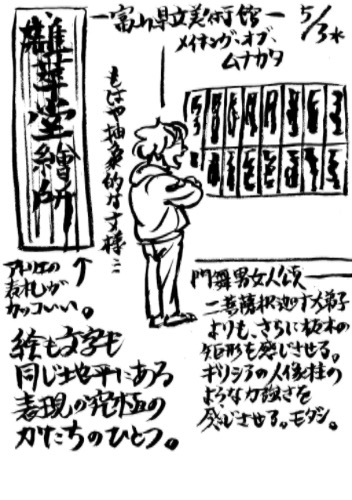 5/3水
富山県立美術館
メイキング・オブ・
ムナカタ
雑華堂繪所
もはや抽象的な文様…
アトリエの
表札が
カッコいい。
絵も文字も
同じ地平にある
表現の究極の
かたちのひとつ。
門舞男女人頌
二菩薩釈迦十大弟子
よりも、さらに板木の
矩形を感じさせる。
ギリシアの人像柱の
ような力強さを
感じさせる。モダン。